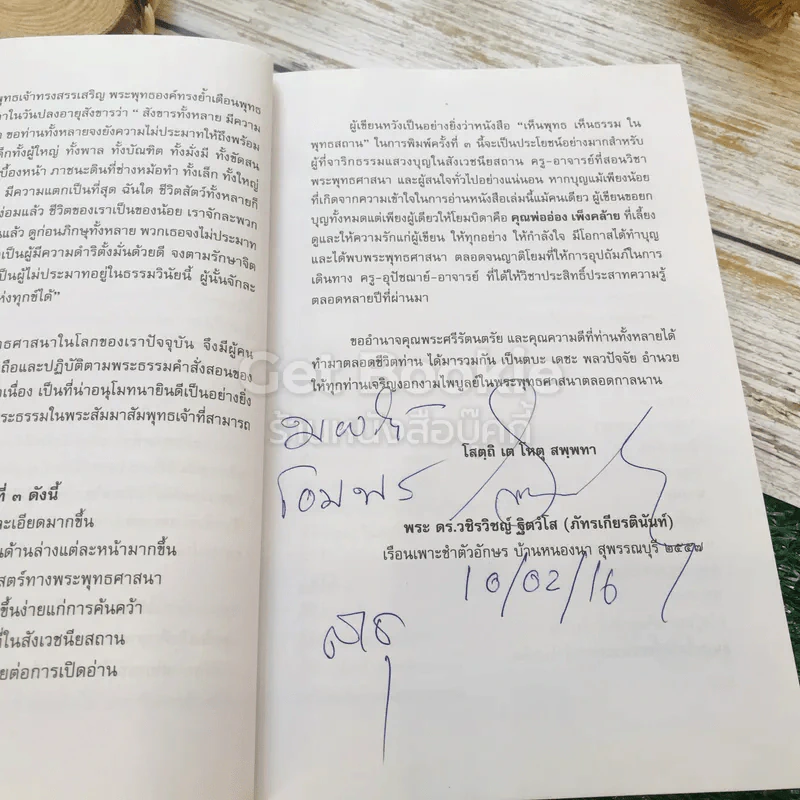 พุทธเจ้าทรงสรรเสริญ พระพุทธองค์ทรงย้ำเตือนพุทธ
ในวันปลงอายุสังขารว่า “ สังขารทั้งหลาย มีความ
ขอท่านทั้งหลายจงยังความไม่ประมาทให้ถึงพร้อม
เด็กทั้งผู้ใหญ่ ทั้งพาล ทั้งบัณฑิต ทั้งมั่งมี ทั้งขัดสน
เบื้องหน้า ภาชนะดินที่ช่างหม้อทำ ทั้งเล็ก ทั้งใหญ่
มีความแตกเป็นที่สุด ฉันใด ชีวิตสัตว์ทั้งหลายก็
ง่อมแล้ว ชีวิตของเราเป็นของน้อย เราจักละพวก
ดูก่อนภิกษุทั้งหลาย พวกเธอจงไม่ประมาท
เป็นผู้มีความดำริตั้งมั่นด้วยดี จงตามรักษาจิต
เป็นผู้ไม่ประมาทอยู่ในธรรมวินัยนี้ ผู้นั้นจักละ
ห่งทุกข์ได้”
ทธศาสนาในโลกของเราปัจจุบัน จึงมีผู้คน
ถือและปฏิบัติตามพระธรรมคำสั่งสอนของ
เนื่อง เป็นที่น่าอนุโมทนายินดีเป็นอย่างยิ่ง
ระธรรมในพระสัมมาสัมพุทธเจ้าที่สามารถ
ที่ ๓ ดังนี้
ละเอียดมากขึ้น
นด้านล่างแต่ละหน้ามากขึ้น
สตร์ทางพระพุทธศาสนา
ขึ้นง่ายแก่การค้นคว้า
ที่ในสังเวชนียสถาน
ยต่อการเปิดอ่าน
ผู้เขียนหวังเป็นอย่างยิ่งว่าหนังสือ “เห็นพุทธ เห็นธรรม ใน
พุทธสถาน” ในการพิมพ์ครั้งที่ ๓ นี้จะเป็นประโยชน์อย่างมากสำหรับ
ผู้ที่จาริกธรรมแสวงบุญในสังเวชนียสถาน ครู-อาจารย์ที่สอนวิชา
พระพุทธศาสนา และผู้สนใจทั่วไปอย่างแน่นอน หากบุญแม้เพียงน้อย
ที่เกิดจากความเข้าใจในการอ่านหนังสือเล่มนี้แม้คนเดียว ผู้เขียนขอยก
บุญทั้งหมดแต่เพียงผู้เดียวให้โยมบิดาคือ คุณพ่ออ่อง เพ็งคล้าย ที่เลี้ยง
ดูและให้ความรักแก่ผู้เขียน ให้ทุกอย่าง ให้กำลังใจ มีโอกาสได้ทำบุญ
และได้พบพระพุทธศาสนา ตลอดจนญาติโยมที่ให้การอุปถัมภ์ในการ
เดินทาง ครู-อุปัชฌาย์-อาจารย์ ที่ได้ให้วิชาประสิทธิ์ประสาทความรู้
ตลอดหลายปีที่ผ่านมา
ขออำนาจคุณพระศรีรัตนตรัย และคุณความดีที่ท่านทั้งหลายได้
ทำมาตลอดชีวิตท่าน ได้มารวมกัน เป็นตบะ เดชะ พลวปัจจัย อำนวย
ให้ทุกท่านเจริญงอกงามไพบูลย์ในพระพุทธศาสนาตลอดกาลนาน
Get Bookie
ร้านหนังสือบุ๊คคี้
โสตฺถิ เต โหตุ สพฺพทา
พระ ดร.วชิรวิชญ์ ฐิตวํโส (ภัทรเกียรตินันท์)
เรือนเพาะชำตัวอักษร บ้านหนองนา สุพรรณบุรี ๒๕๕๗
10/02/16
สาธุ